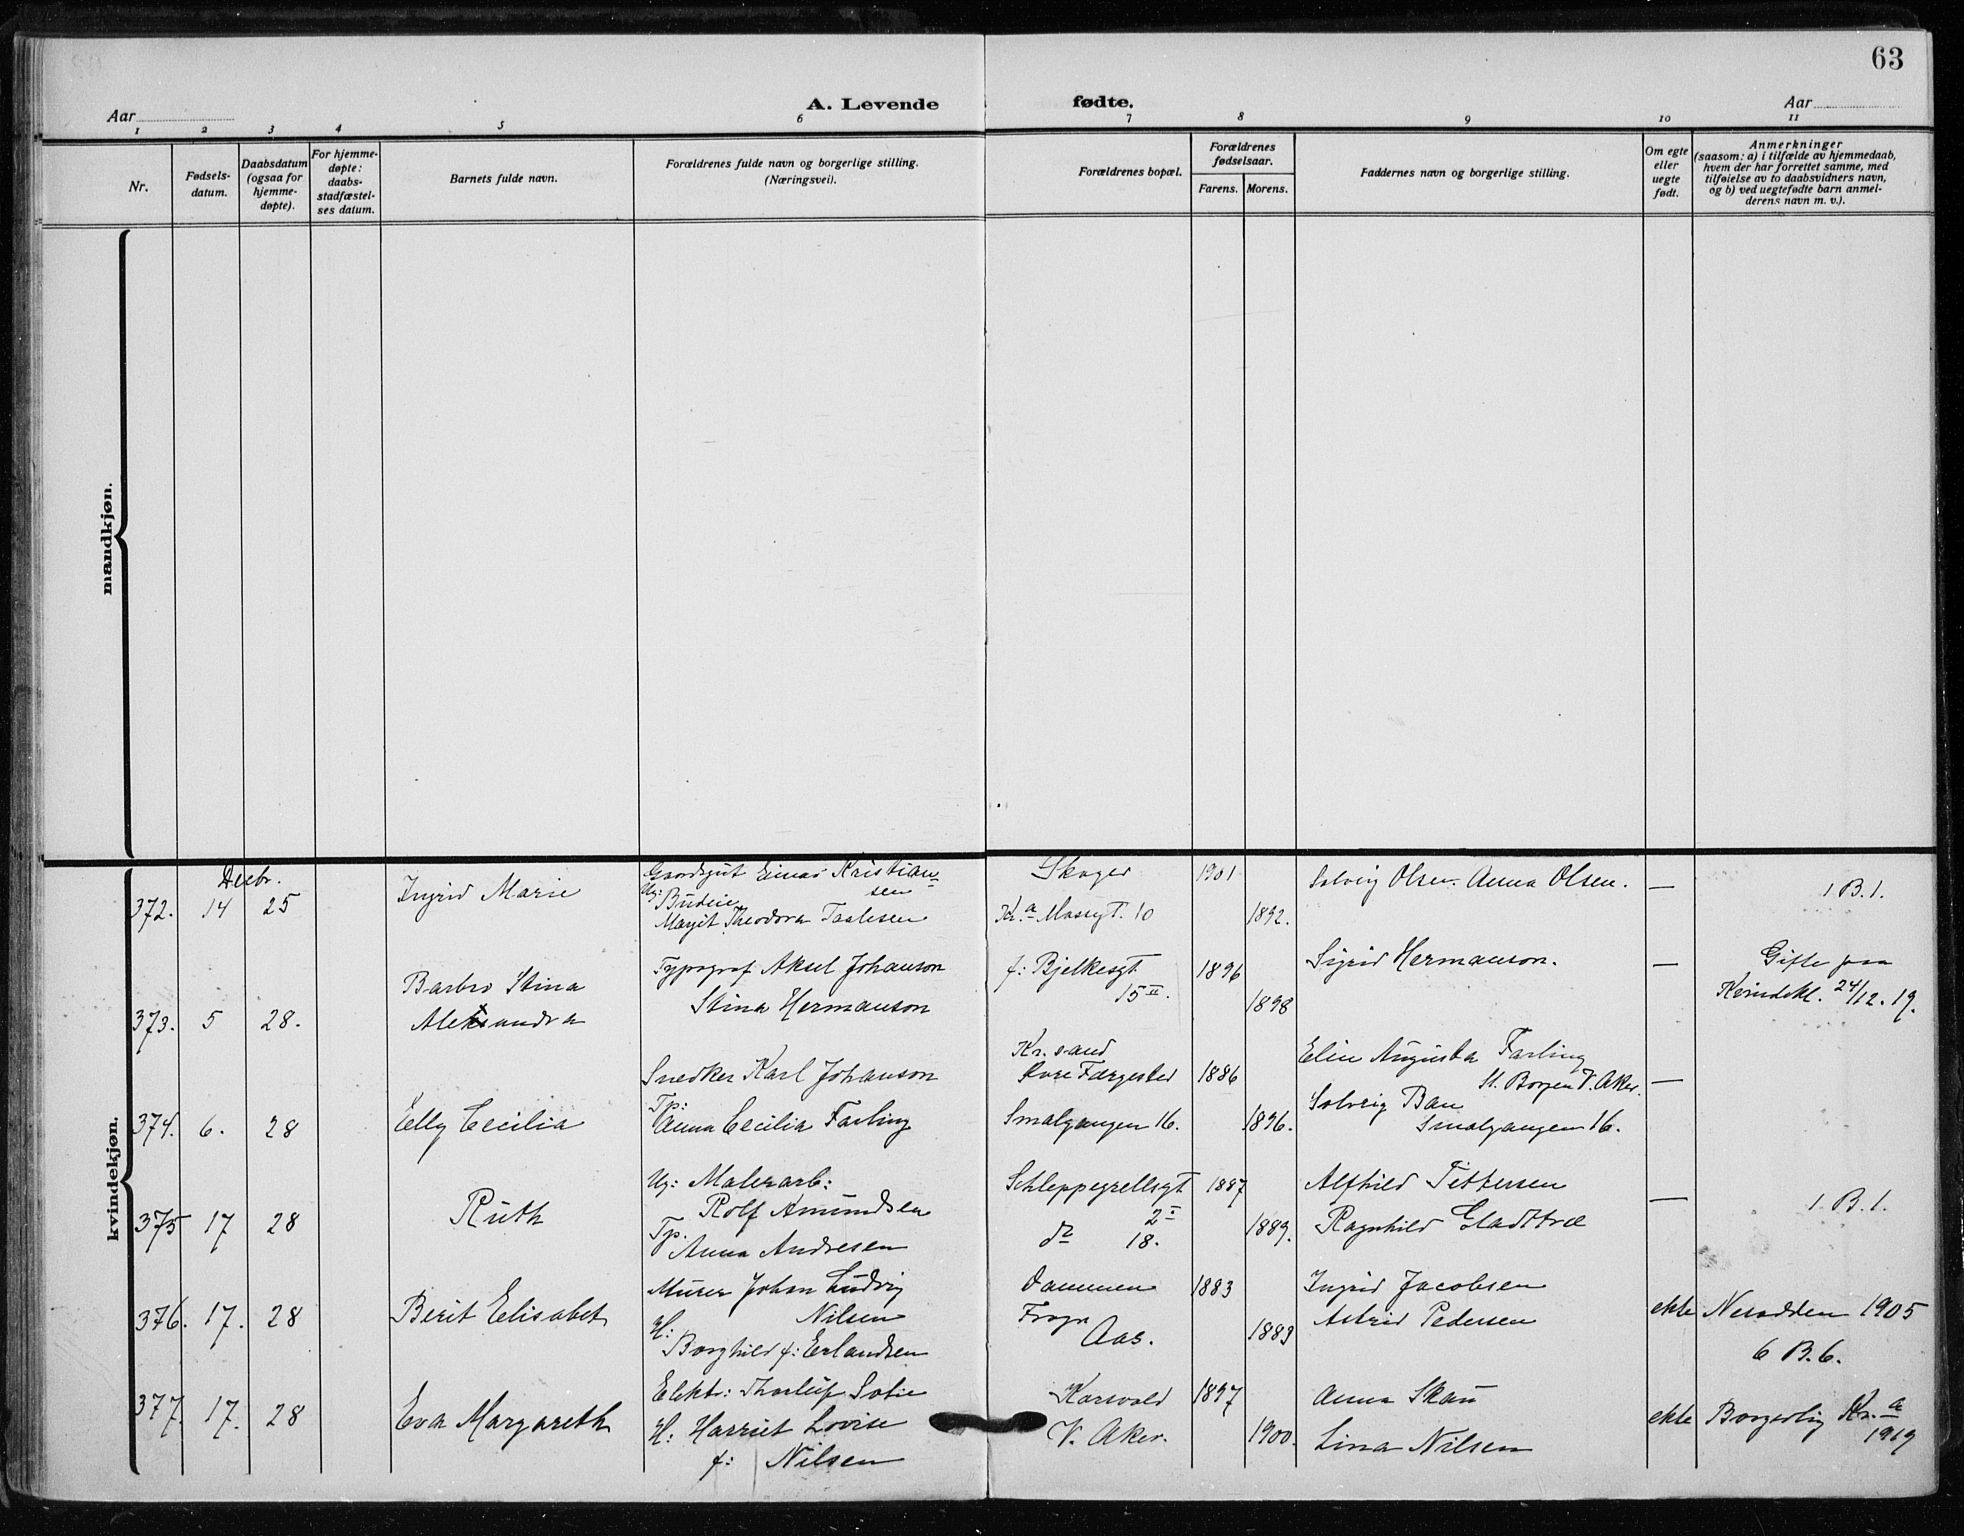 63
Aar
A. Levende fødte.
Aar
1 2 3 4 5 6 7 8 9 10 11
Nr.
Fødsels-
datum.
Daabsdatum
(ogsaa for
hjemme-
døpte).
For hjemme-
døpte:
daabs-
stadfæstel-
ses datum.
Barnets fulde navn.
Forældrenes fulde navn og borgerlige stilling.
(Næringsvei).
Forældrenes bopæl.
Forældrenes
fødselsaar.
Farens. Morens.
Faddernes navn og borgerlige stilling.
Om egte
eller
uegte
født.
Anmerkninger
(saasom: a) i tilfælde av hjemmedaab,
hvem der har forrettet samme, med
tilføielse av to daabsvidners navn,
og b) ved uegtefødte barn anmel-
derens navn m. v.).
mandkjøn.
kvindekjøn.
Decbr.
372. 14 25
Ingrid Marie
Gaardsgut Einar Kristian-
sen
Ug: Budeie
Margit Theodora Taalesen
Skoger
Kr.a Mossgt. 10
1901
1892.
Solveig Olsen. Anna Olsen.
—
1 B. 1.
373. 5 28.
Barbro Stina
Aleksandra
Typograf Aksel Johanson
Stina Hermanson
f: Bjelkesgt
15 II.
1896
1898
Sigrid Hermanson.
—
Gifte paa
24/12. 19.
374. 6. 28
Elly Cecilia
Snedker Karl Johanson
Tp:
Anna Cecilia Farling
Kr. sand
Øvre Færgested
Smalgangen 16.
1886
1896.
Elin Augusta Farling
St. Borgen V. Aker.
Solveig Bau
Smalgangen 16.
—
375 17 28
Ruth
Ug: Malerarb:
Rolf Amundsen
Tp.
Anna Andresen
Schleppegrellsgt
2 I
do 18.
1887
1889.
Alfhild Pettersen
Ragnhild Gladtræ
—
1 B. 1.
376. 17. 28
Berit Elisabet
Murer Johan Ludvig
Nilsen
H:
Borghild f: Erlandsen
Dammen
Frogn
Aas.
1883
1883
Ingrid Jacobsen
Astrid Pedersen
ekte
Nesodden 1905
6 B. 6.
377. 17. 28
Eva Margareth
Elektr: Thorleif Sofie
H: Harriet Lovise
f: Nilsen
Korsvold
V. Aker.
1897
1900.
Anna Skau
Lina Nilsen
ekte
Borgerlig Kr.a
1919